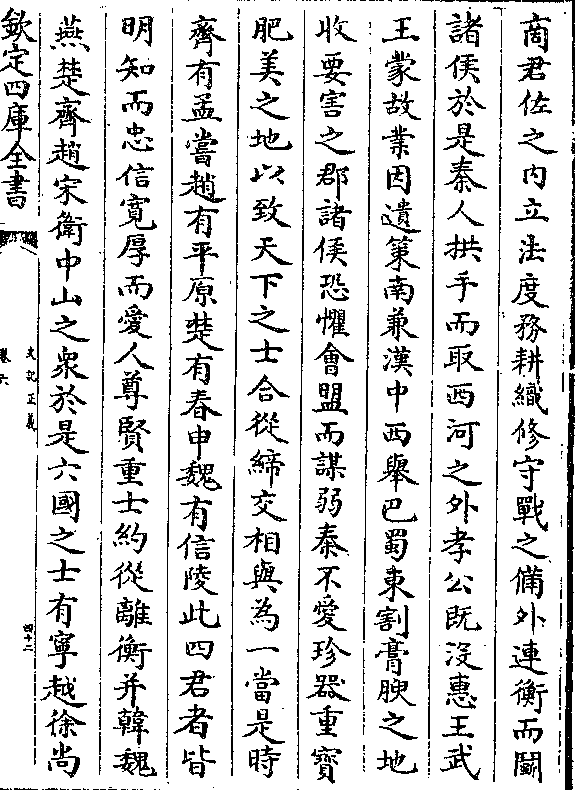 商君佐之内立法度務耕織修守戰之備外連衡而鬬
諸侯於是秦人拱手而取西河之外孝公既沒惠王武
王蒙故業因遺策南兼漢中西舉巴蜀東割膏腴之地
收要害之郡諸侯恐懼會盟而謀弱秦不愛珍器重寶
肥美之地以致天下之士合從締交相與為一當是時
齊有孟嘗趙有平原楚有春申魏有信陵此四君者皆
明知而忠信寛厚而愛人尊賢重士約從離衡并韓魏
燕楚齊趙宋衛中山之衆於是六國之士有寧越徐尚
欽定四庫全書
史記正義
卷六
四十二